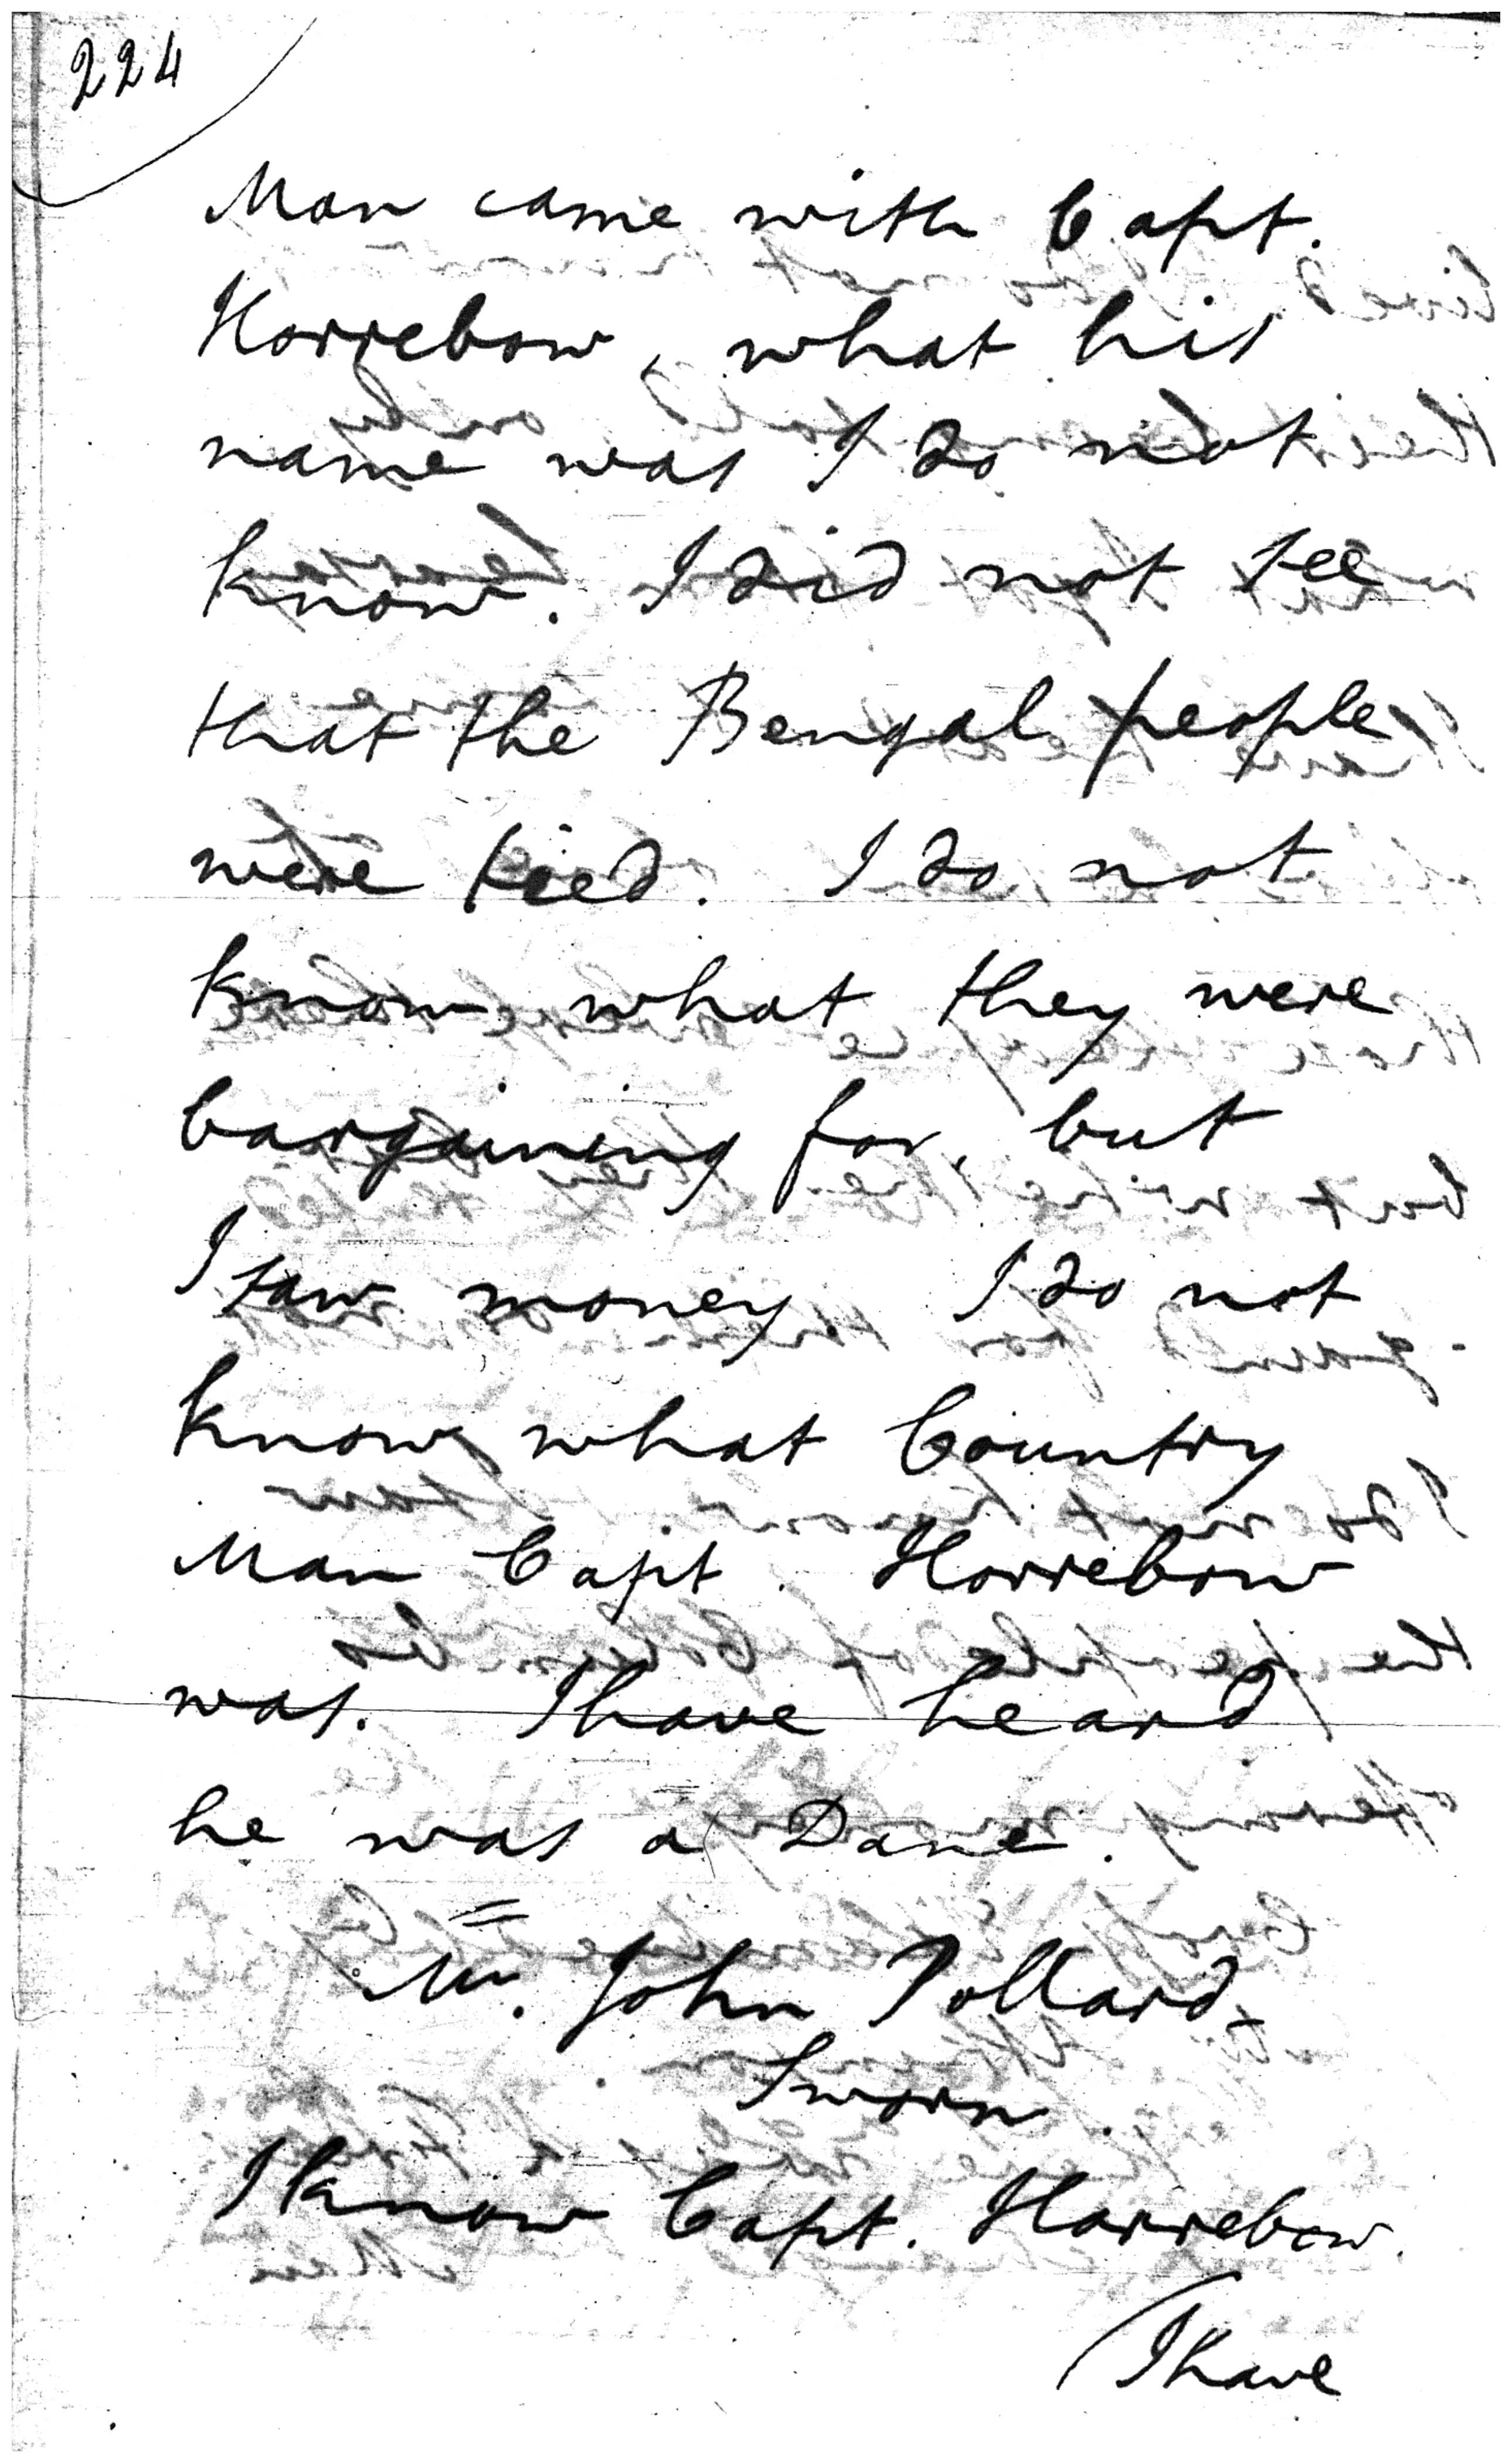 224
Man came with Capt.
Horrebow, what his
name was I do not
know. I did not see
that the Bengal people
were tied. I do not
know what they were
bargaining for, but
I saw money. I do not
know what Country
Man Capt. Horrebow
was. I have heard
he was a Dane.
=
Mr. John Pollard
Sworn
I know Capt. Horrebow.
I have